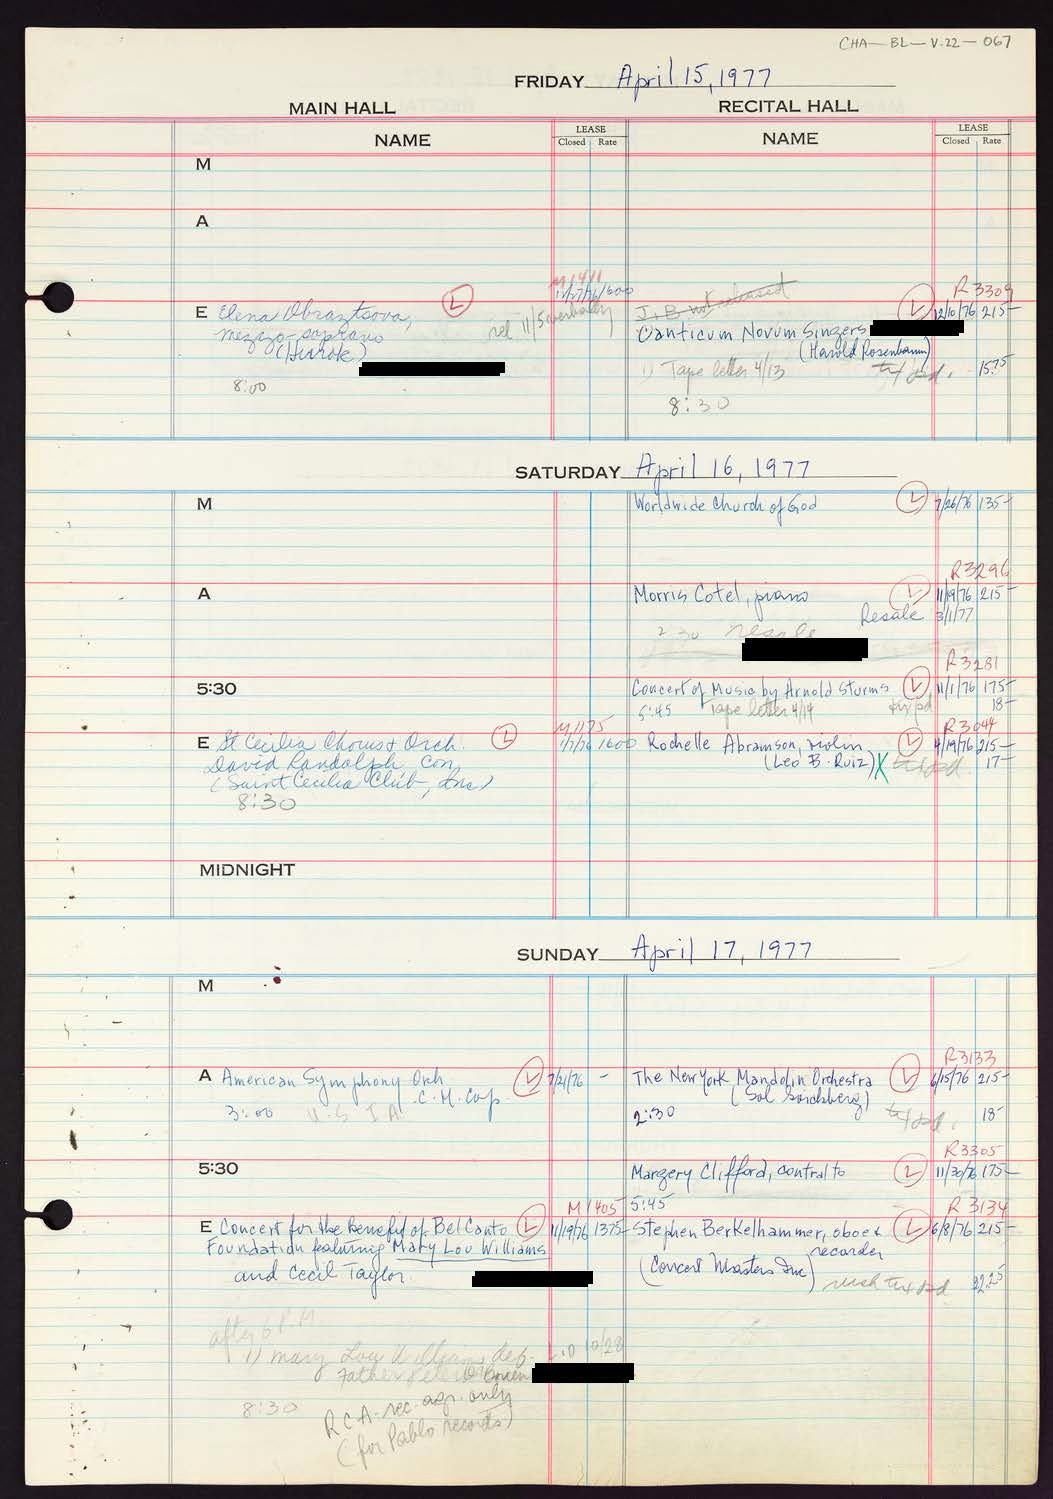 CHA—BL—V.22—067
FRIDAY April 15, 1977
MAIN HALL
RECITAL HALL
NAME
LEASE
Closed Rate
NAME
LEASE
Closed Rate
M
A
E Elena Obraztsova,
mezzo-soprano
(Hurok)
8:00
L
rel 11/5 verbally
M1411
1600
J. B. not released
R3309
Canticum Novum Singers
L 12/10/76 215-
(Harold Rosenbaum)
1) Tape letter 4/13
txf pd. 15.75
8:30
SATURDAY April 16, 1977
M
Worldwide Church of God L 7/26/76 135-
R3296
A
Morris Cotel, piano L 11/19/76 215-
Resale 3/1/77
2:30 resale
R3281
5:30
Concert of Music by Arnold Sturms L 11/1/76 175-
5:45 Tape letter 4/14 18-
M1175
R3044
E St Cecilia Chorus & Orch. L 1/7/76 1600
David Randolph, Con.
(Saint Cecilia Club, Inc)
8:30
Rochelle Abramson, violin L 4/19/76 215-
(Leo B. Ruiz) X 17-
MIDNIGHT
SUNDAY April 17, 1977
M
R3133
A American Symphony Orch L 7/21/76 -
C.H. Corp.
3:00 U.S.I.A.
The New York Mandolin Orchestra L 6/15/76 215-
2:30 txf pd. 18-
R3305
5:30
Margery Clifford, contralto L 11/30/76 175-
5:45
M1405
R3134
E Concert for the benefit of Bel Canto L 11/19/76 1375-
Foundation featuring Mary Lou Williams
and Cecil Taylor
Stephen Berkelhammer, oboe & L 6/8/76 215-
recorder
(Concert Masters Inc)
22.25
after 6 P.M
1) Mary Lou Williams dep. 10/28
Father Peter O'Brien
8:30
RCA-rec. agr. only
(for Pablo records)